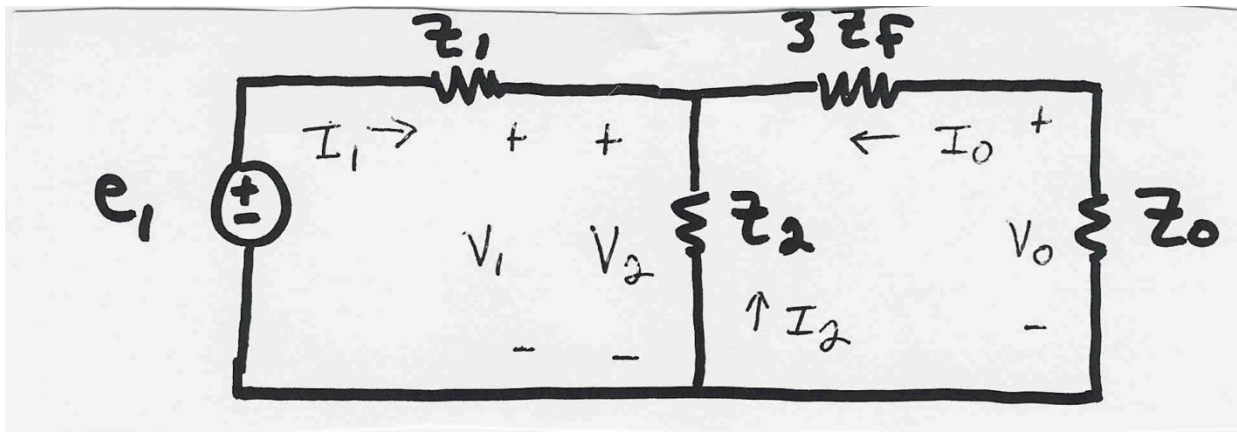 Z1 3 Zf
I1 → ← I0 +
+ +
e1 + - V1 V2 Z2 V0 Z0
↑ I2 -
- -